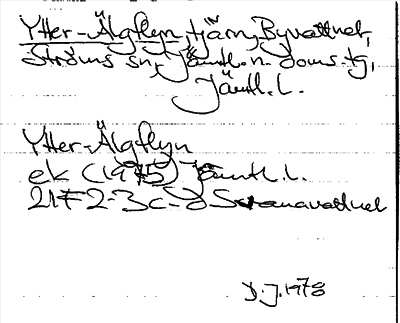 Ytter-Älgflyn, tjärn, Byvattnet,
Ströms sn, Jämtl. n. doms. tg,
Jämtl. l.
Ytter-Älgflyn
ek (1975) Jämtl. l.
21F 2-3 c-d Svanavattnet
D.J. 1978